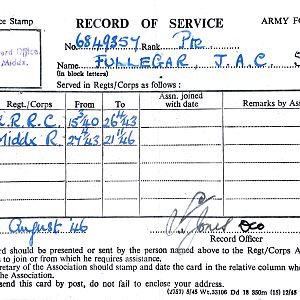 ce Stamp RECORD OF SERVICE ARMY FO
ord Office
Middx.
No. 6849357 Rank Pte
FULLEGAR, J.A.C.
(in block letters)
Served in Regts/Corps as follows :
Regt./Corps From To Assn. joined with date Remarks by Assn
.R.R.C. 15/3/40 26/11/43
Middx R. 27/11/43 21/1/46
August 46
Jones
Record Officer
rd should be presented or sent by the person named above to the Regt/Corps A
s to join or from which he requires assistance.
retary of the Association should stamp and date the card in the relative column wh
the Association.
send this card by post, do not fail to enclose your address.
(2757) 8/45 Wt.33106 Dd 18 850m (15) 12/45